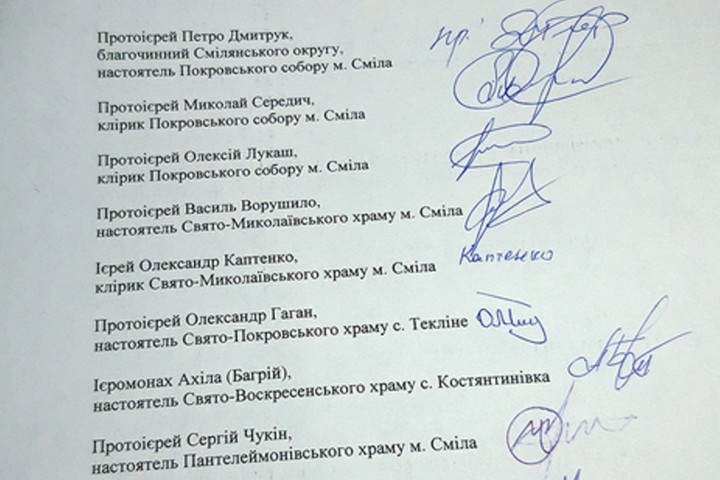 Протоієрей Петро Дмитрук,
благочинний Смілянського округу,
настоятель Покровського собору м. Сміла
Протоієрей Миколай Середич,
клірик Покровського собору м. Сміла
Протоієрей Олексій Лукаш,
клірик Покровського собору м. Сміла
Протоієрей Василь Ворушило,
настоятель Свято-Миколаївського храму м. Сміла
Ієрей Олександр Каптенко,
клірик Свято-Миколаївського храму м. Сміла
Каптенко
Протоієрей Олександр Гаган,
настоятель Свято-Покровського храму с. Текліне
Ієромонах Ахіла (Багрій),
настоятель Свято-Воскресенського храму с. Костянтинівка
Протоієрей Сергій Чукін,
настоятель Пантелеймонівського храму м. Сміла